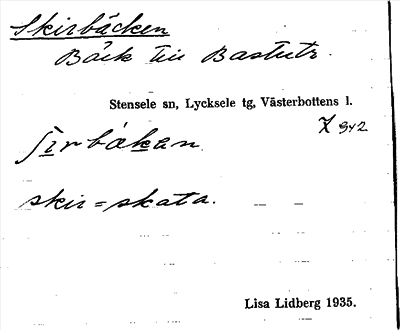 Skirbäcken
Bäck till Bastutr.
Stensele sn, Lycksele tg, Västerbottens l.
Z 942
ʃɪrbäkan.
skir = skata.
Lisa Lidberg 1935.